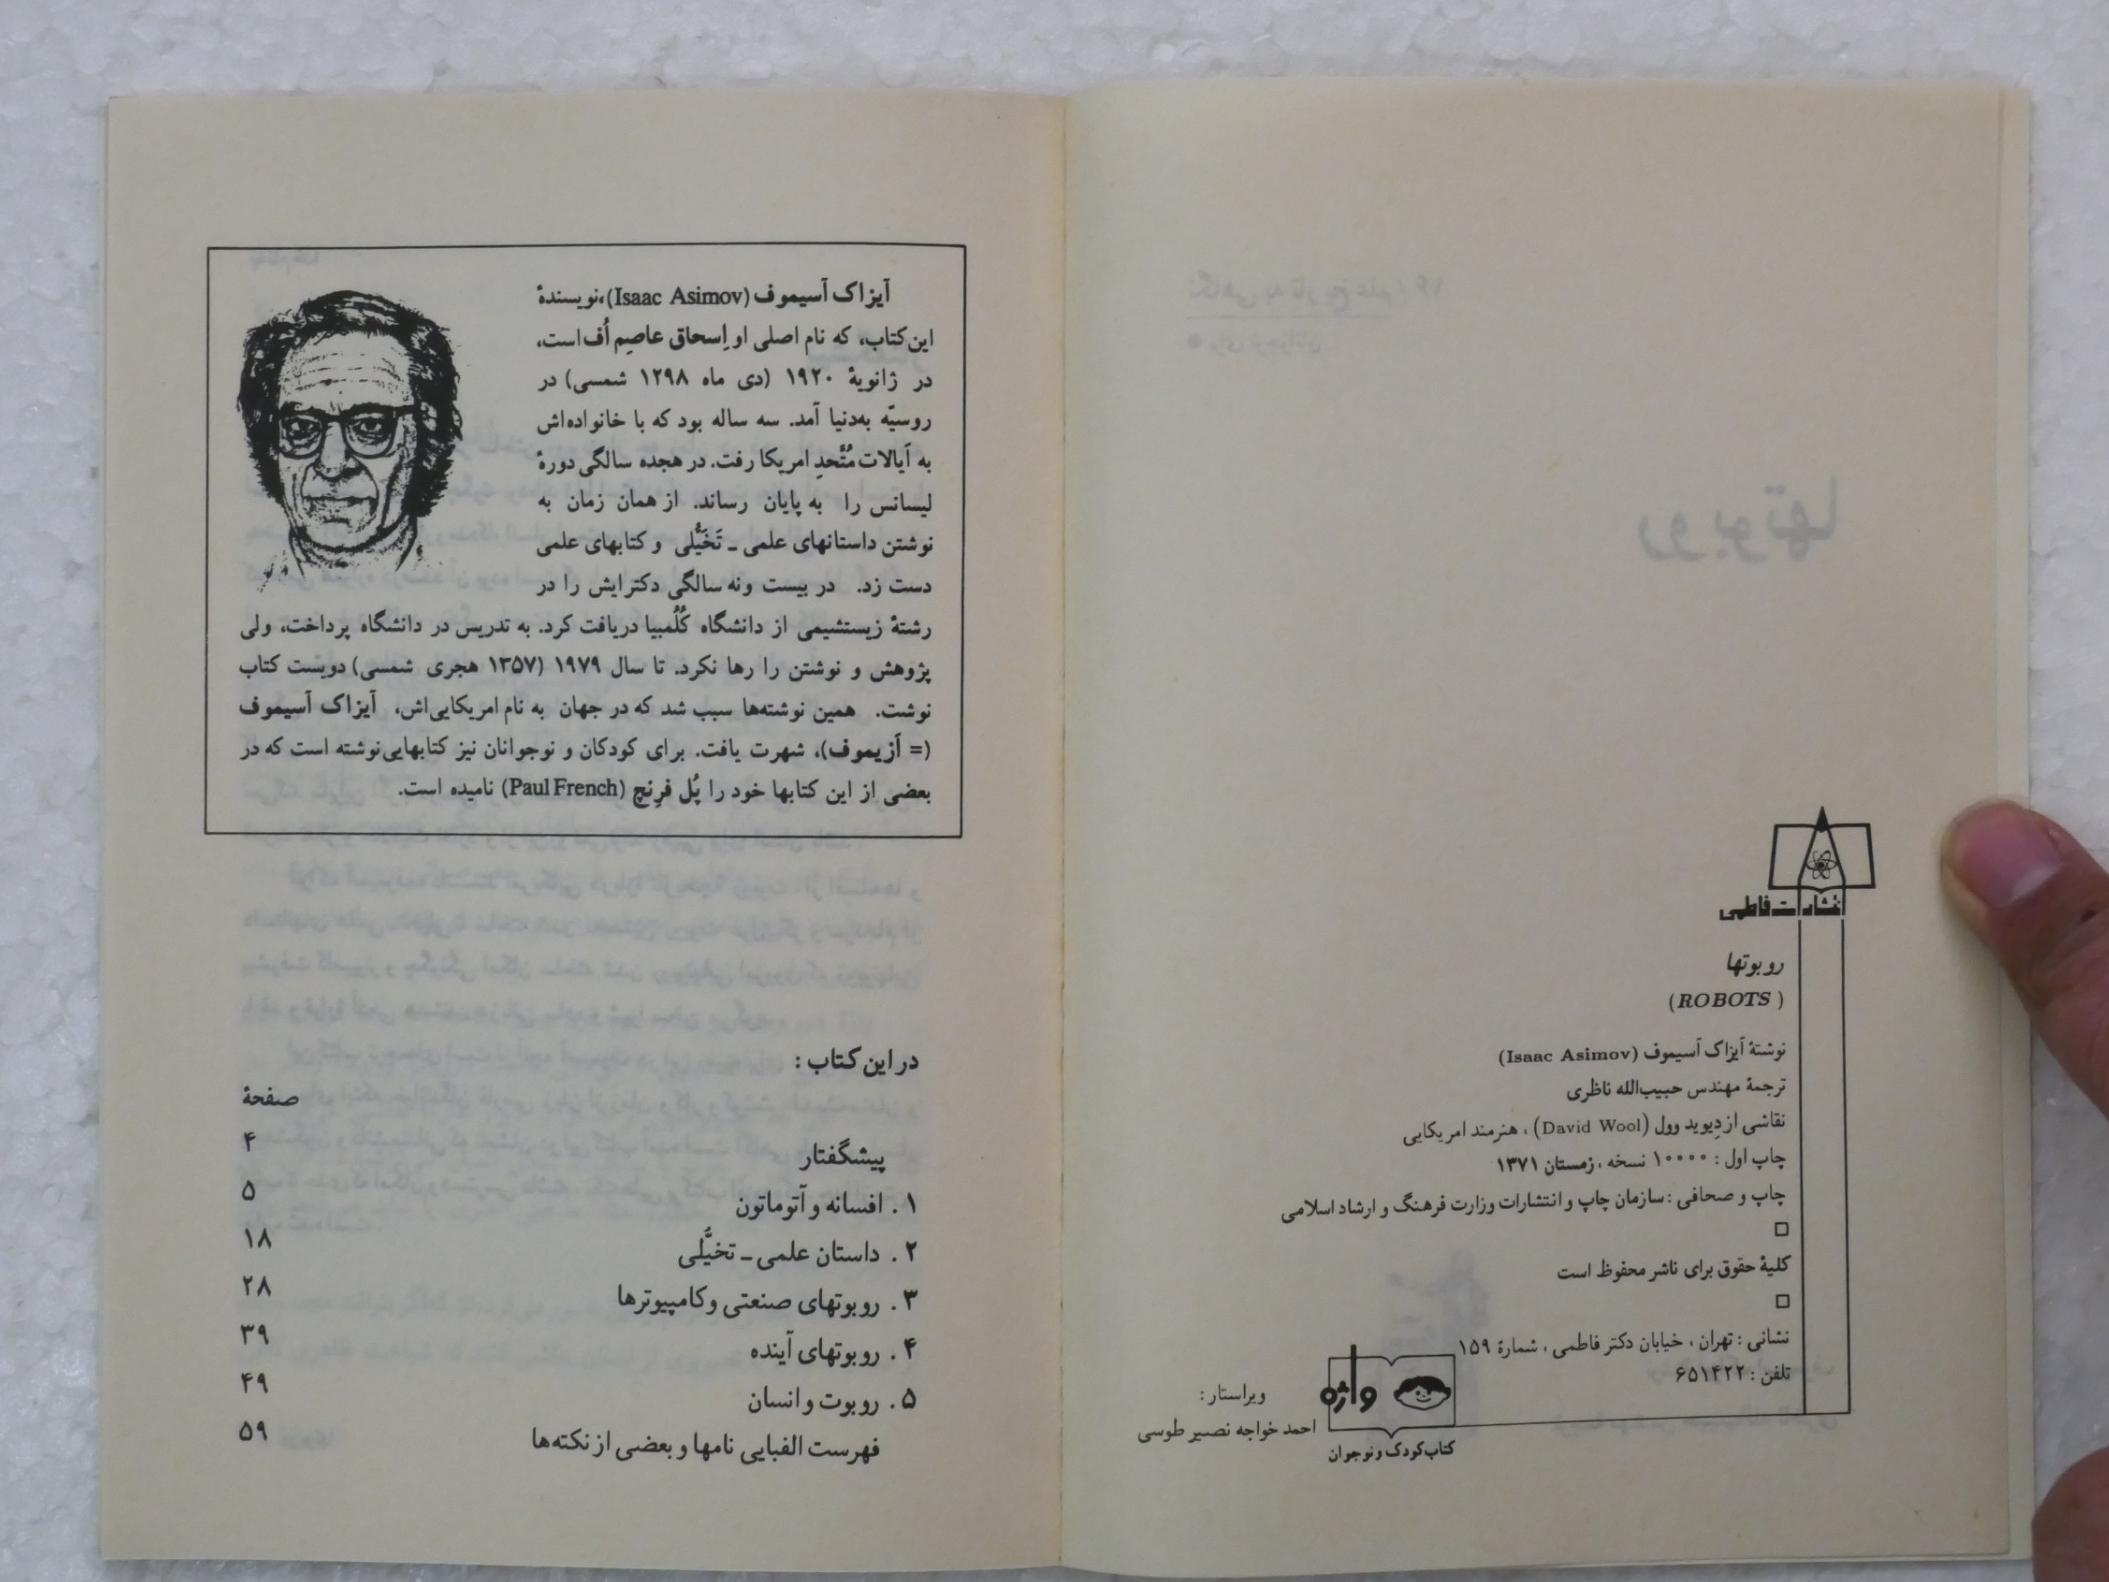 انتشارات فاطمی
روبوتها
(ROBOTS)
نوشتهٔ آیزاک آسیموف (Isaac Asimov)
ترجمهٔ مهندس حبیب‌الله ناظری
نقاشی از دِیوید وول (David Wool)، هنرمند امریکایی
چاپ اول: ۱۰۰۰۰ نسخه، زمستان ۱۳۷۱
چاپ و صحافی: سازمان چاپ و انتشارات وزارت فرهنگ و ارشاد اسلامی
کلیهٔ حقوق برای ناشر محفوظ است
نشانی: تهران، خیابان دکتر فاطمی، شمارهٔ ۱۵۹
تلفن: ۶۵۱۴۲۲
واژه
کتاب کودک و نوجوان
ویراستار:
احمد خواجه نصیر طوسی
آیزاک آسیموف (Isaac Asimov)،نویسندهٔ
این کتاب، که نام اصلی او اِسحاق عاصِم اُف است،
در ژانویهٔ ۱۹۲۰ (دی ماه ۱۲۹۸ شمسی) در
روسیّه به‌دنیا آمد. سه ساله بود که با خانواده‌اش
به اَیالات مُتَّحدِ امریکا رفت. در هجده سالگی دورهٔ
لیسانس را به پایان رساند. از همان زمان به
نوشتن داستانهای علمی ـ تَخَیُّلی و کتابهای علمی
دست زد. در بیست ونه سالگی دکترایش را در
رشتهٔ زیستشیمی از دانشگاه کُلُمبیا دریافت کرد. به تدریس در دانشگاه پرداخت، ولی
پژوهش و نوشتن را رها نکرد. تا سال ۱۹۷۹ (۱۳۵۷ هجری شمسی) دویست کتاب
نوشت. همین نوشته‌ها سبب شد که در جهان به نام امریکایی‌اش، آیزاک آسیموف
(= اَزیموف)، شهرت یافت. برای کودکان و نوجوانان نیز کتابهایی‌نوشته است که در
بعضی از این کتابها خود را پُل فرِنچ (Paul French) نامیده است.
در این کتاب:
صفحهٔ
پیشگفتار ۴
۱. افسانه و آتوماتون ۵
۲. داستان علمی ـ تخیُّلی ۱۸
۳. روبوتهای صنعتی وکامپیوترها ۲۸
۴. روبوتهای آینده ۳۹
۵. روبوت و انسان ۴۹
فهرست الفبایی نامها و بعضی از نکته‌ها ۵۹